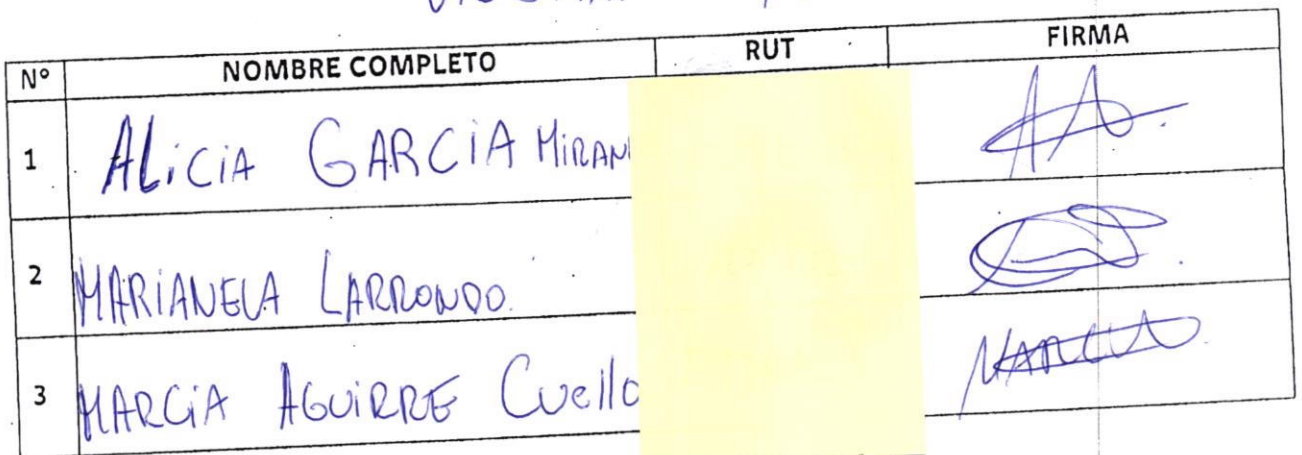 N° NOMBRE COMPLETO RUT FIRMA
1 ALiCiA GARCiA MiRAN
2 MARiANELA LARRONDO.
3 MARCiA AGUiRRE Cuello